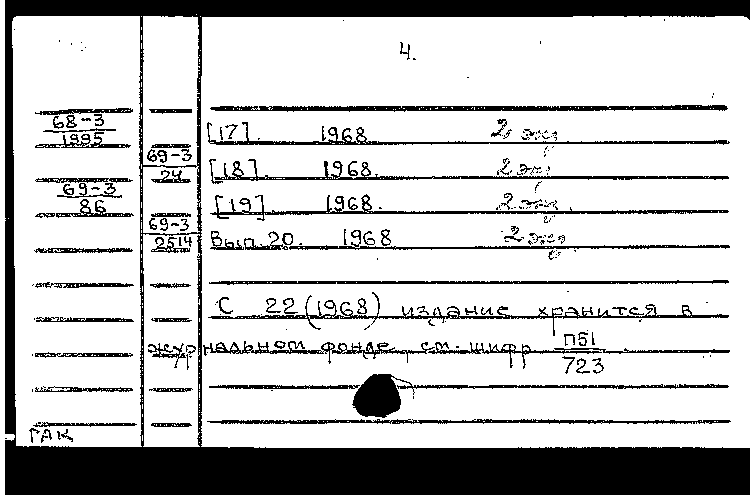 4.
68-3
1995
[17]. 1968 2 экз
69-3
24
[18]. 1968. 2 экз
69-3
86
[19]. 1968. 2 экз.
69-3
2514
Вып. 20. 1968 2 экз
С 22 (1968) издание хранится в
журнальном фонде, см. шифр П51
723
ГАК